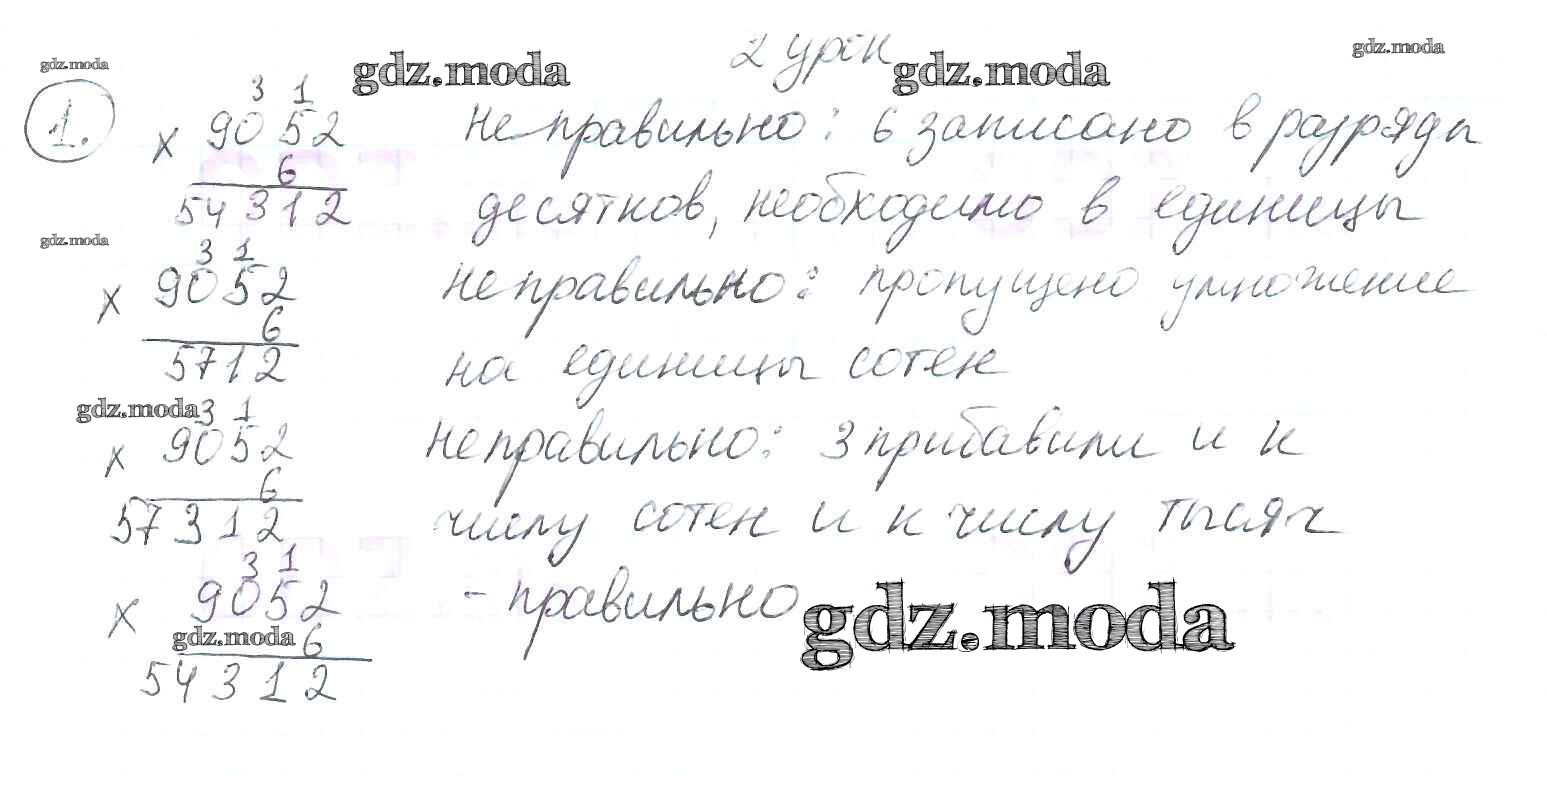 2 урок
gdz.moda gdz.moda gdz.moda gdz.moda
1.
3 1
× 9052 неправильно: 6 записано в разряды
6
54312 десятков, необходимо в единицы
gdz.moda
3 1
× 9052 неправильно: пропущено умножение
6
5712 на единицы сотен
gdz.moda
3 1
× 9052 неправильно: 3 прибавили и к
6
57312 числу сотен и к числу тысяч
3 1
× 9052 - правильно
gdz.moda 6 gdz.moda
54312